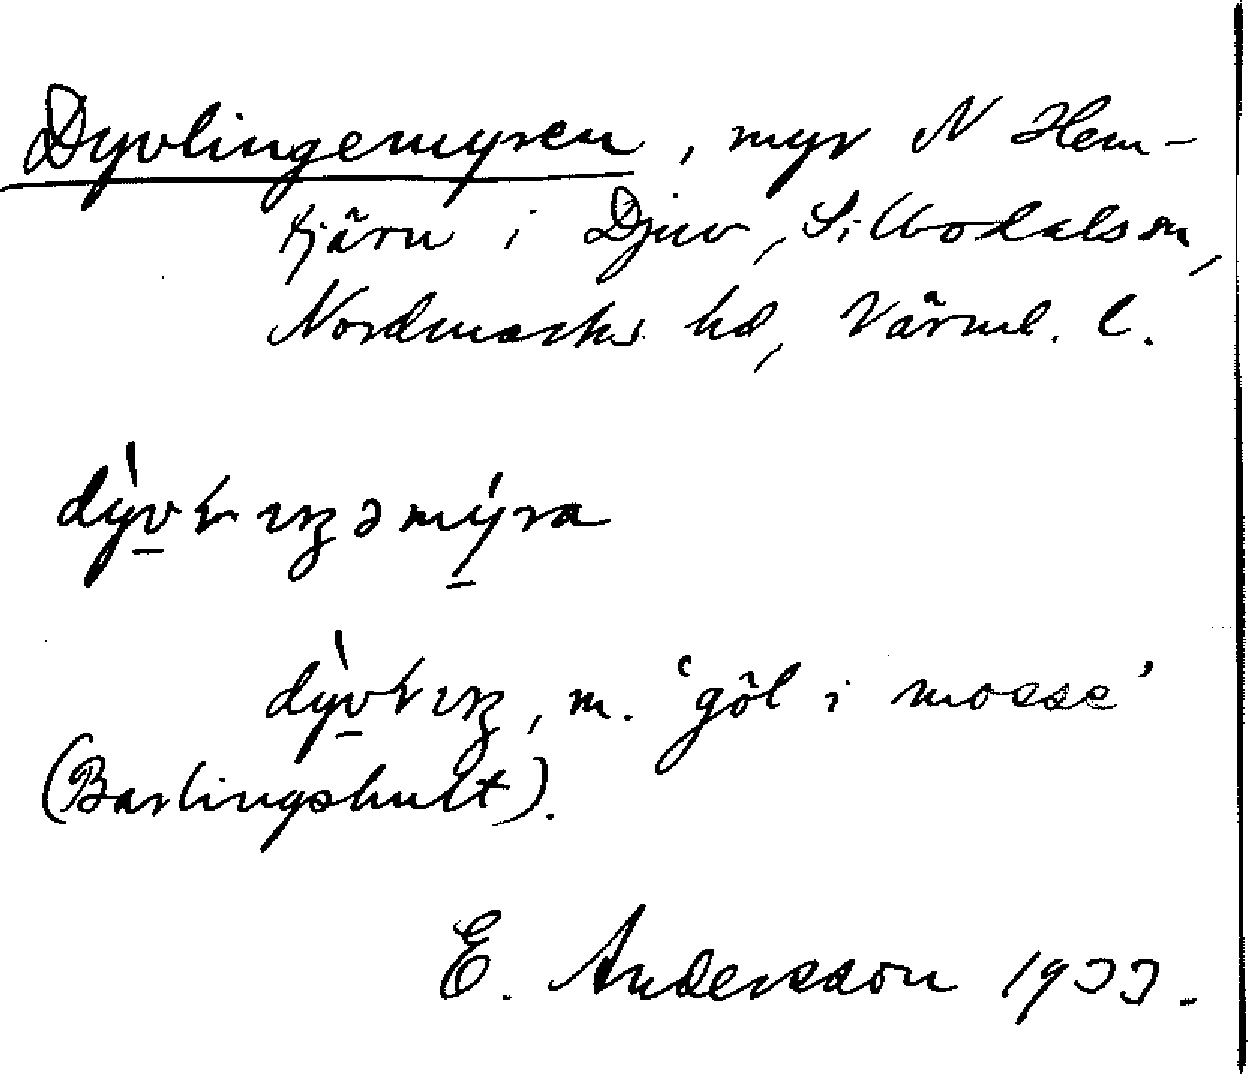 Dyvlingemyren, myr N Hem-
tjärn i Djuv, Sillbodals sn,
Nordmarks hd, Värml. l.
dỳvlıŋəmýra
dỳvlıŋ, m. 'göl i mosse'
(Barlingshult).
E. Andersson 1933.